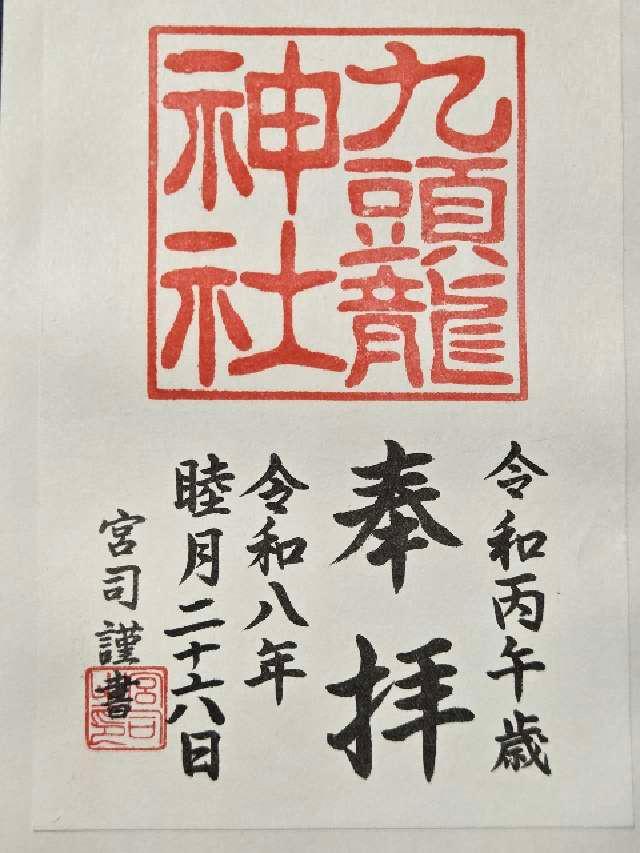 九頭龍
神社
令和丙午歳
奉拝
令和八年
睦月二十六日
宮司謹書